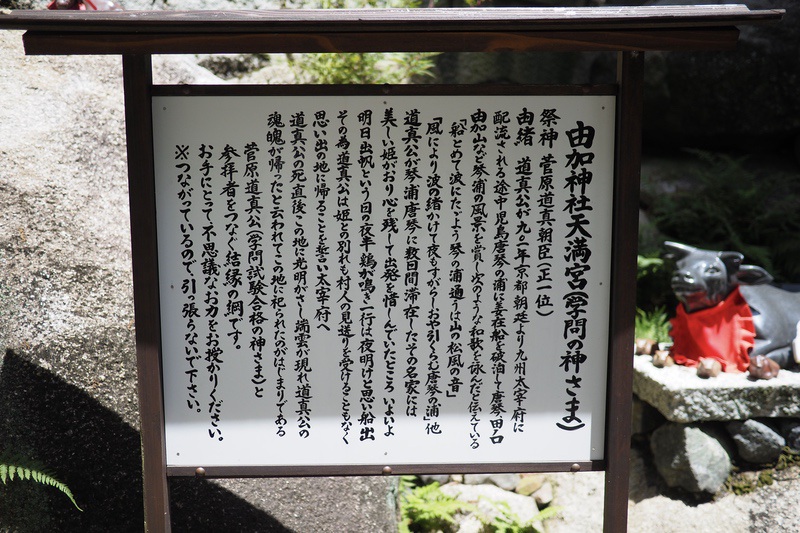 由加神社天満宮(学問の神さま)
祭神 菅原道真朝臣(正一位)
由緒 道真公が九〇一年京都朝廷より九州太宰府に
配流される途中児島唐琴の浦に船を破泊して唐琴、田ノ口
由加山など琴浦の風景を賞し次のような和歌を詠んだと伝えている
「船とめて波にたゞよう琴の浦通うは山の松風の音」
「風により波の緒かけて夜もすがらしおや引くらむ唐琴の浦」他
道真公が琴浦唐琴に数日間滞在したその名家には
美しい姫がおり心を残して出発を惜しんでいたところいよいよ
明日出帆という日の夜半鶏が鳴き一行は夜明けと思い船出
その為道真公は姫との別れも村人の見送りを受けることもなく
思い出の地に帰ることを誓い太宰府へ
道真公の死直後この地に光明がさし瑞雲が現れ道真公の
魂魄が帰ったと云われてこの地に祀られたのがはじまりである
菅原道真公(学問試験合格の神さま)と
参拝者をつなぐ結縁の綱です。
お手にとって不思議なお力をお授かりください。
※つながっているので、引っ張らないで下さい。